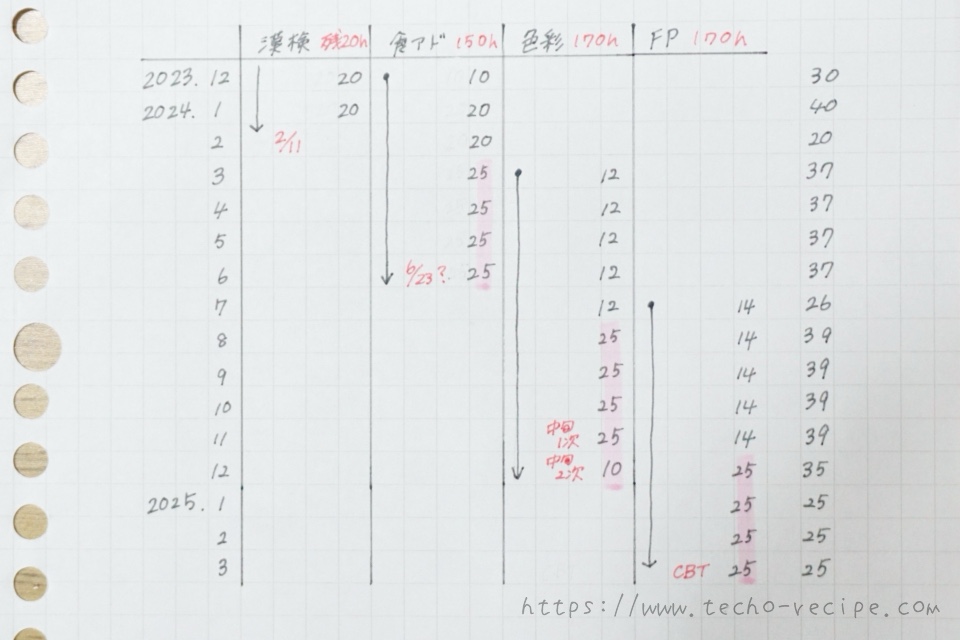 漢検 残20h 食アド 150h 色彩 170h FP 170h
2023. 12 20 10 30
2024. 1 20 20 40
2 2/11 20 20
3 25 12 37
4 25 12 37
5 25 12 37
6 6/23? 25 12 37
7 12 14 26
8 25 14 39
9 25 14 39
10 25 14 39
11 中旬 1次 25 14 39
12 中旬 2次 10 25 35
2025. 1 25 25
2 25 25
3 CBT 25 25
https://www.techo-recipe.com